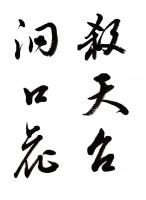 殺天台
洞口花